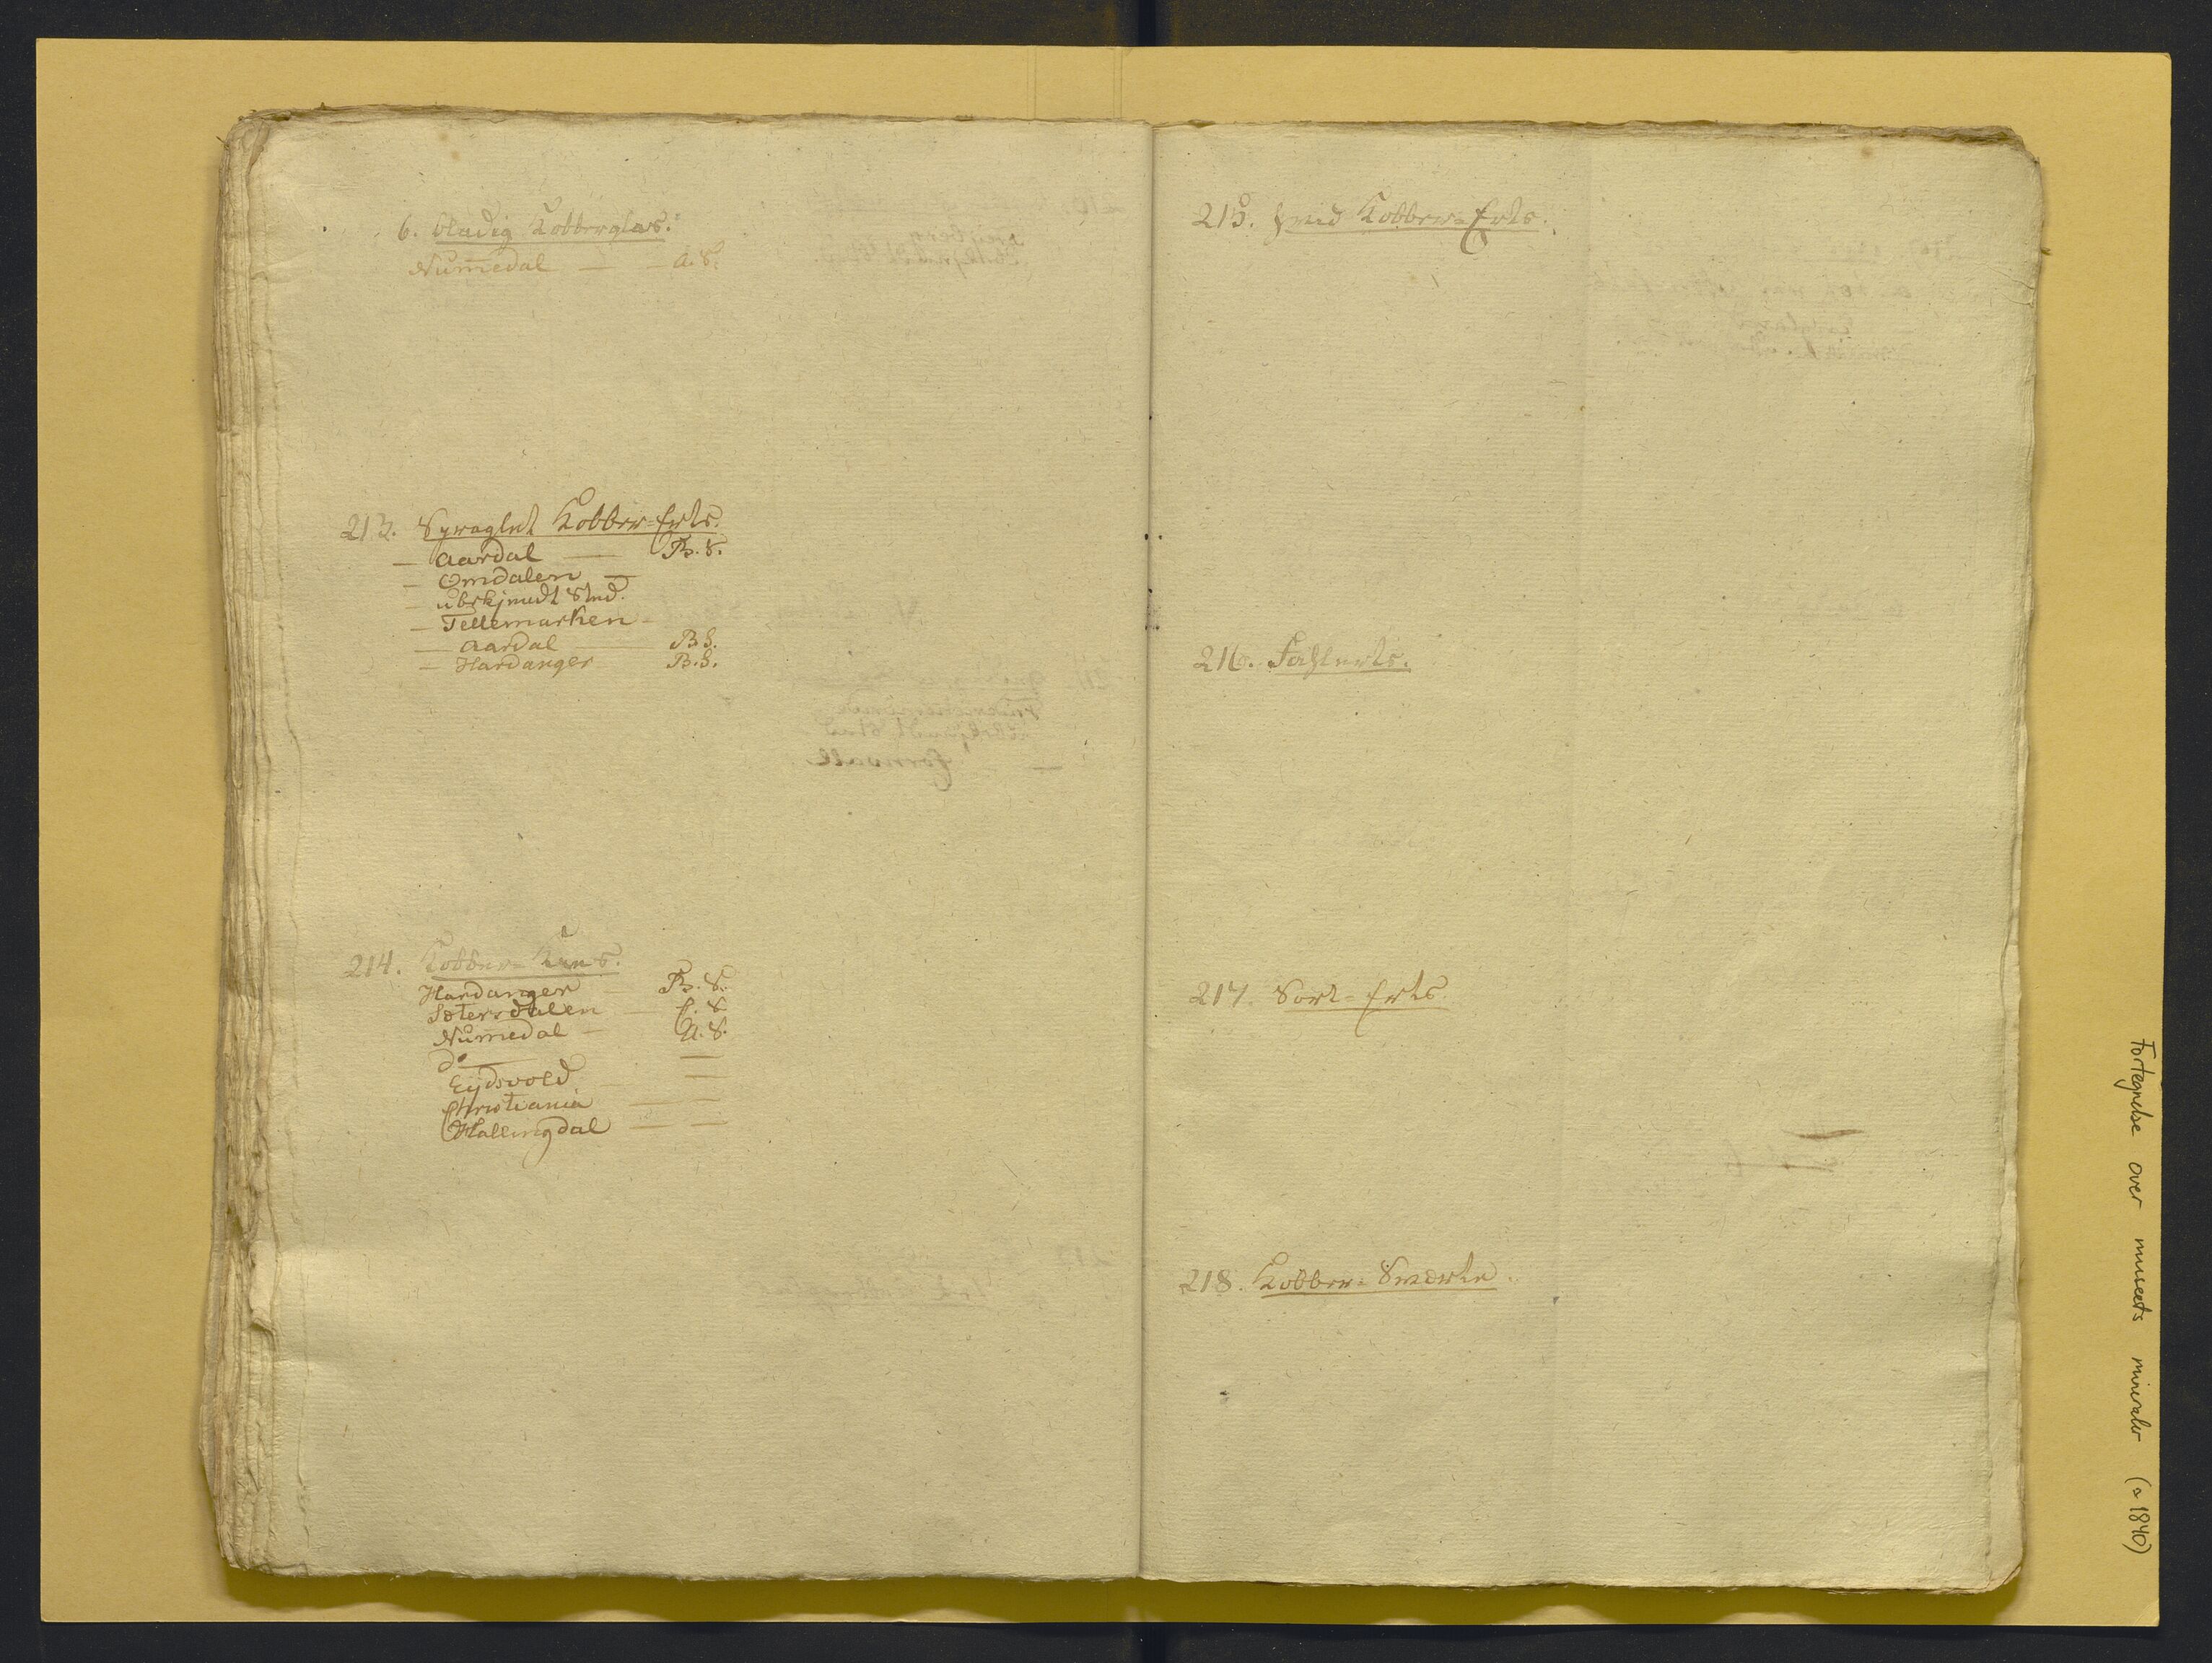 6. bladig Kobberglas.
Nummedal — — A. S.
213. Spraglet Kobber-Erts.
— Aardal — B. S.
— Omdalen —
— ubekjendt Sted.
— Tellemarken —
— Aardal — B S.
— Hardanger B. S.
214. Kobber-Kiis.
Hardanger — B. S.
Sætersdalen — C. S.
Nummedal — A. S.
do — —
Eydsvold — —
Christiania — —
Hallingdal — —
215. hvid Kobber-Erts.
216. Fahlerts.
217. Sort-Erts.
218. Kobber-Sværte.
Fortegnelse over museets mineraler (a 1840)